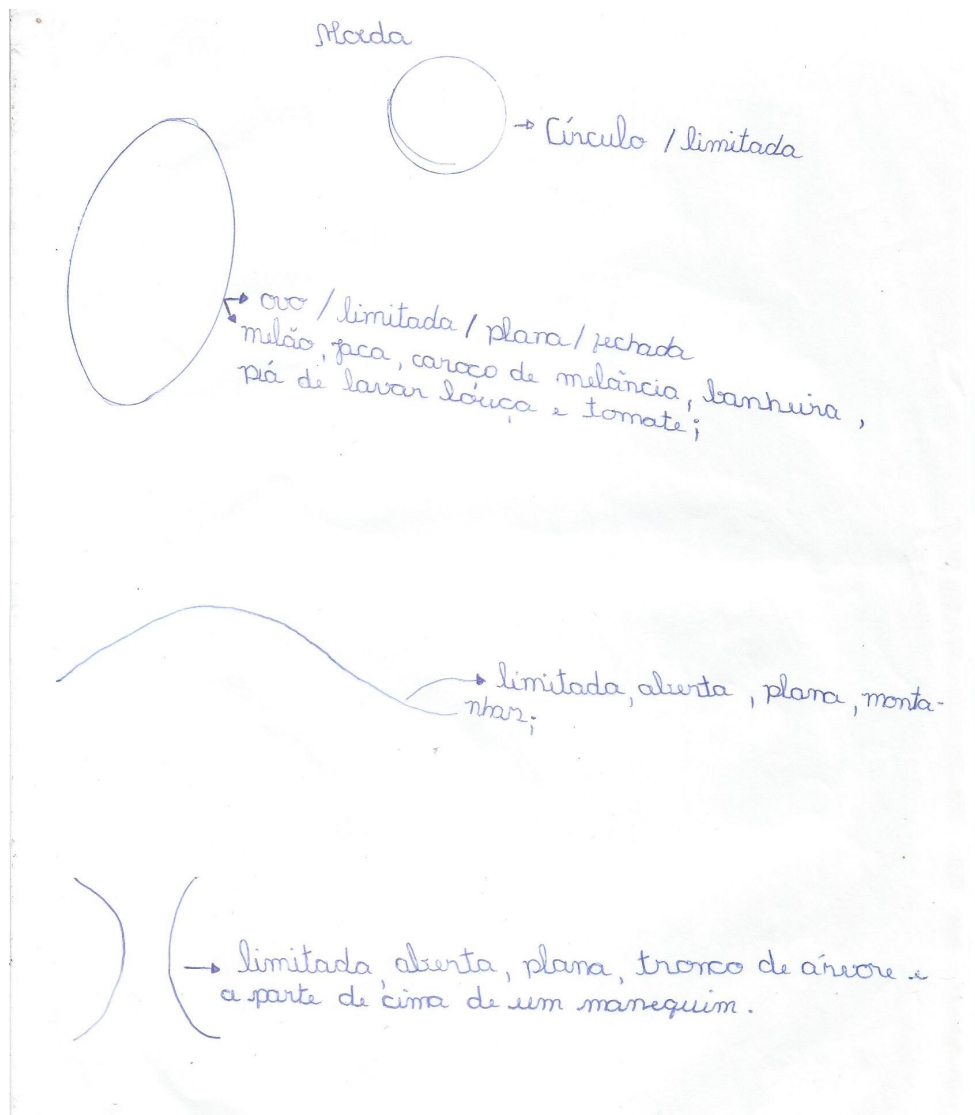 Moeda
→ Círculo / limitada
→ ovo / limitada / plana / fechada
melão, jaca, caroço de melância, banheira,
piá de lavar louça e tomate;
→ limitada, aberta, plana, monta-
nhas;
→ limitada, aberta, plana, tronco de árvore e
a parte de cima de um manequim.